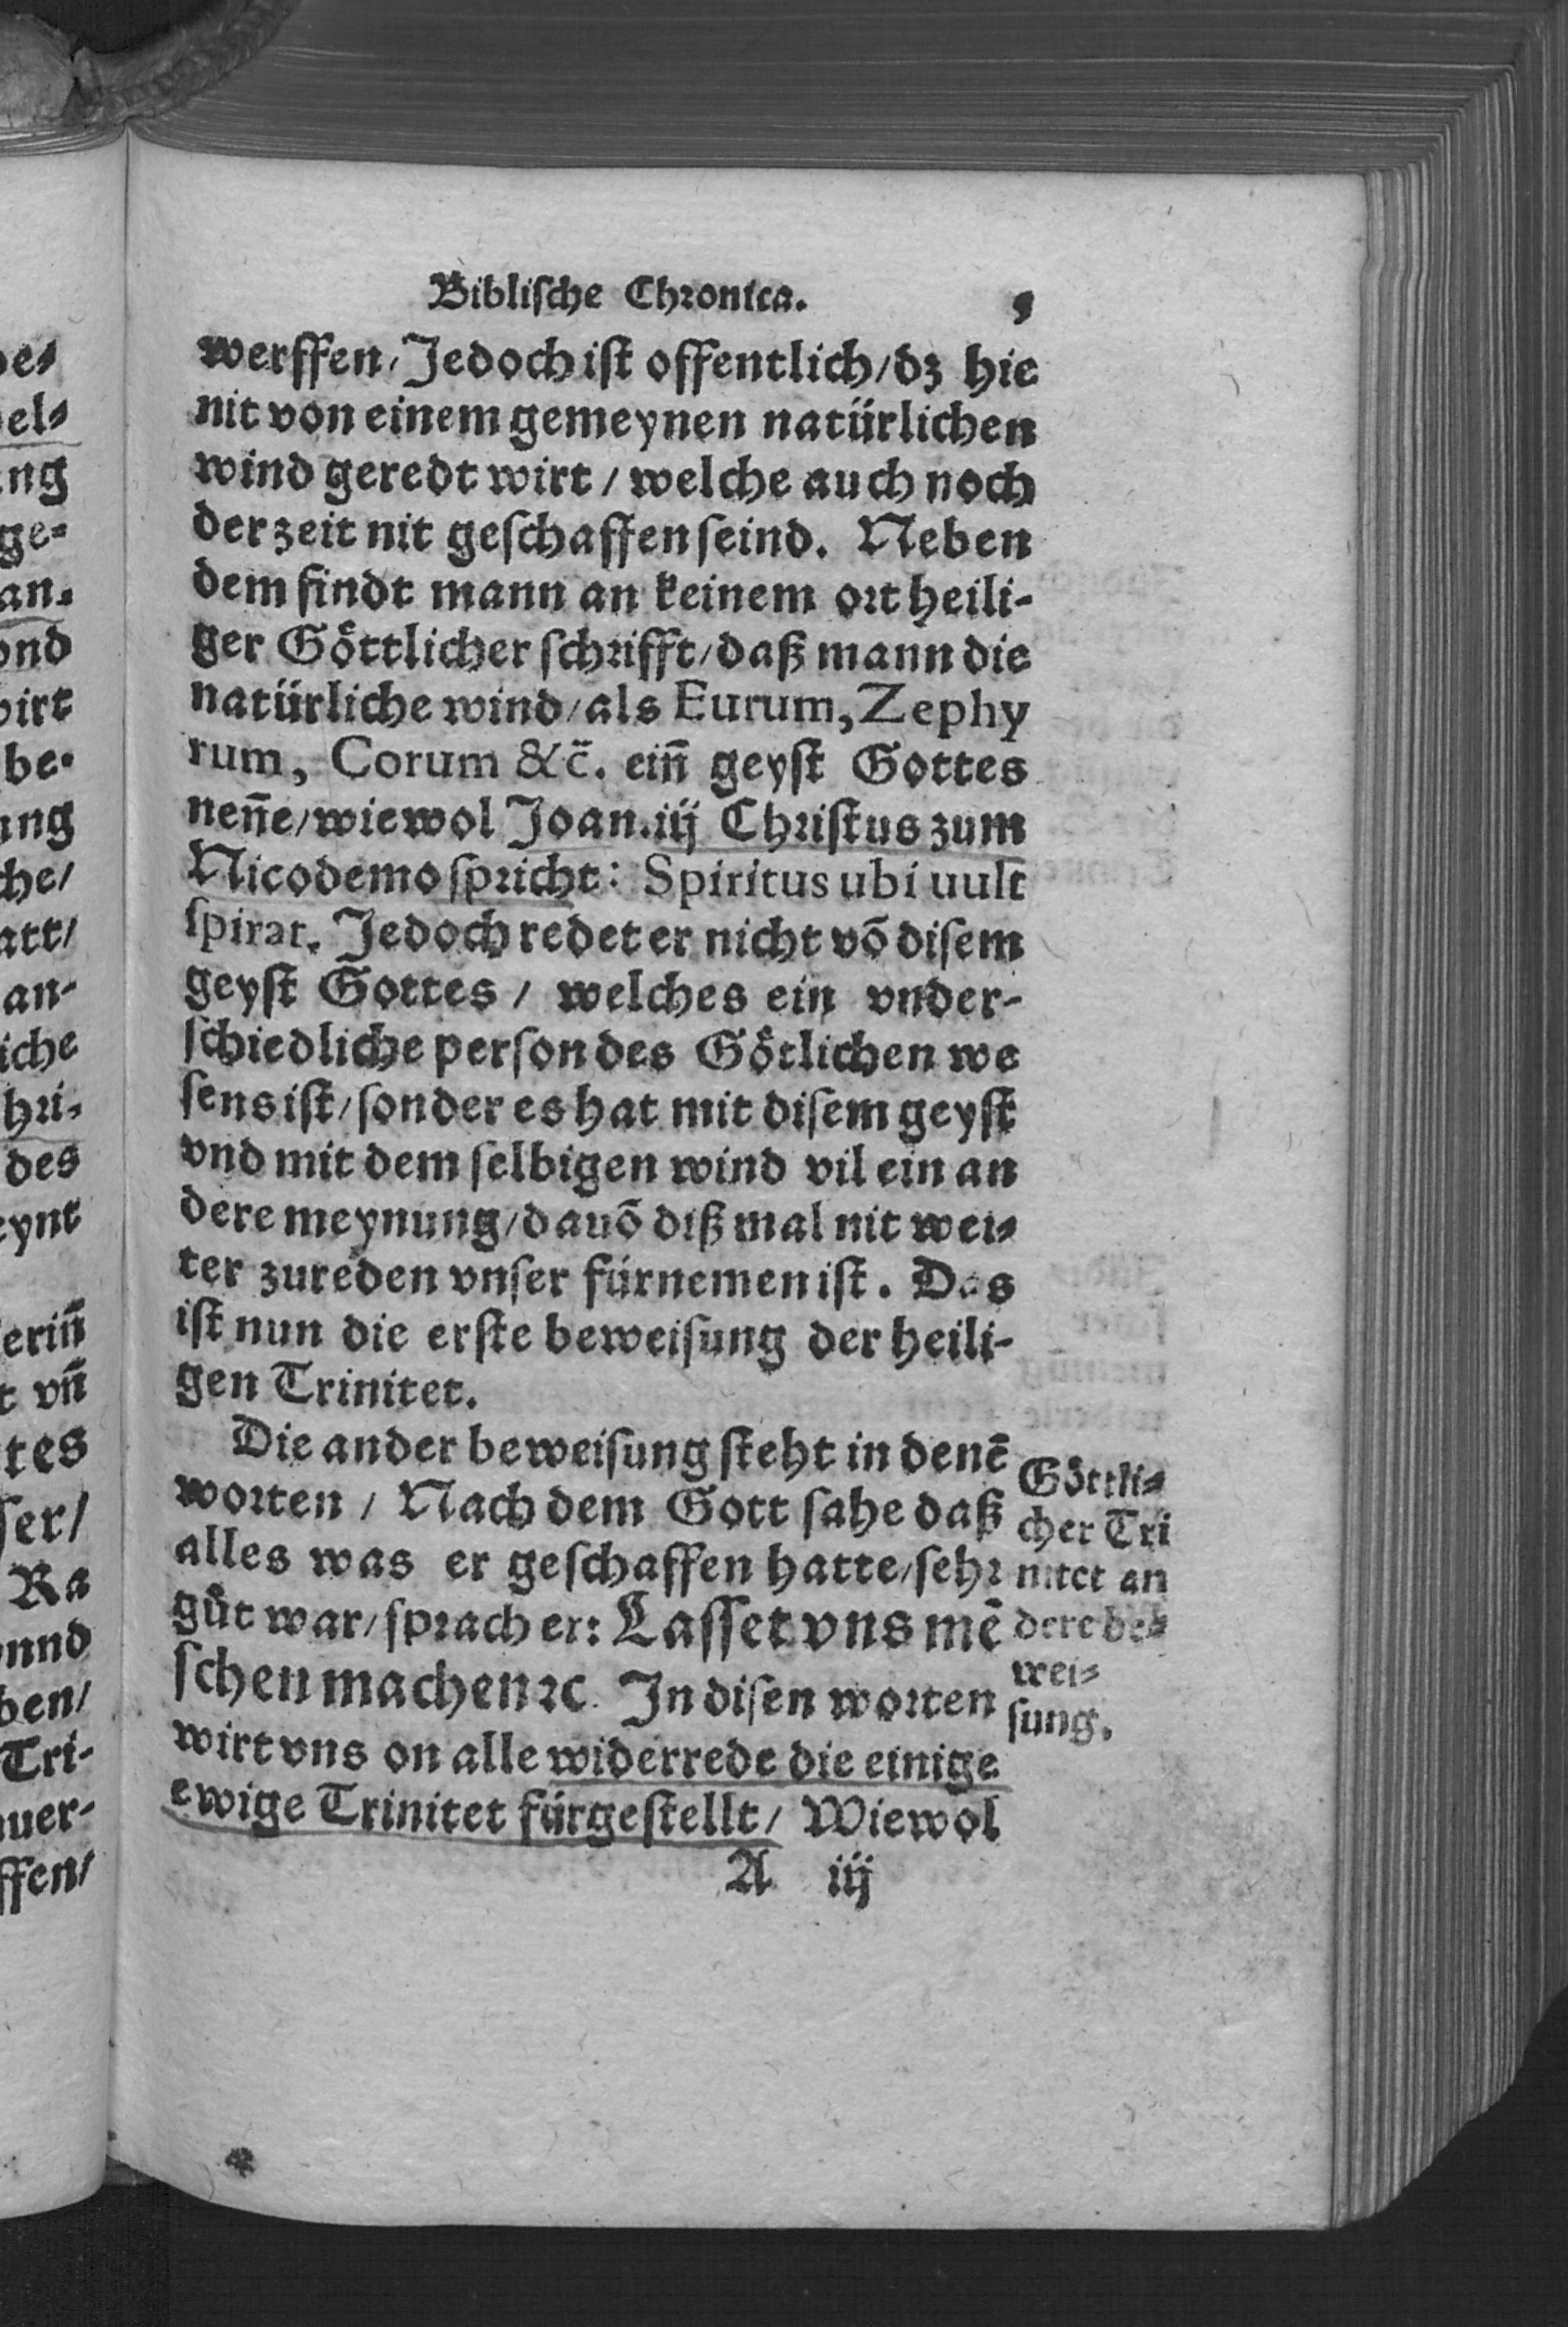 Biblische Chronica. 5
werffen/Jedoch ist offentlich/dz hie
nit von einem gemeynen natürlichen
wind geredt wirt / welche auch noch
der zeit nit geschaffen seind. Neben
dem findt mann an keinem ort heili-
ger Göttlicher schrifft/daß mann die
natürliche wind/als Eurum, Zephy
rum, Corum &c̄. ein̄ geyst Gottes
nen̄e/wiewol Joan.iij Christus zum
Nicodemo spricht: Spiritus ubi uult
spirat. Jedoch redet er nicht vō disem
geyst Gottes / welches ein vnder-
schiedliche person des Götlichen we
sens ist/sonder es hat mit disem geyst
vnd mit dem selbigen wind vil ein an
dere meynung/dauō diß mal nit wei-
ter zureden vnser fürnemen ist. Das
ist nun die erste beweisung der heili-
gen Trinitet.
Die ander beweisung steht in denē
worten / Nach dem Gott sahe daß
alles was er geschaffen hatte/sehr
gůt war/sprach er: Lasset vns mē
schen machen ꝛc. In disen worten
wirt vns on alle widerrede die einige
ewige Trinitet fürgestellt/ Wiewol
A iij
Göttli-
cher Tri
nitet an
dere be-
wei-
sung.